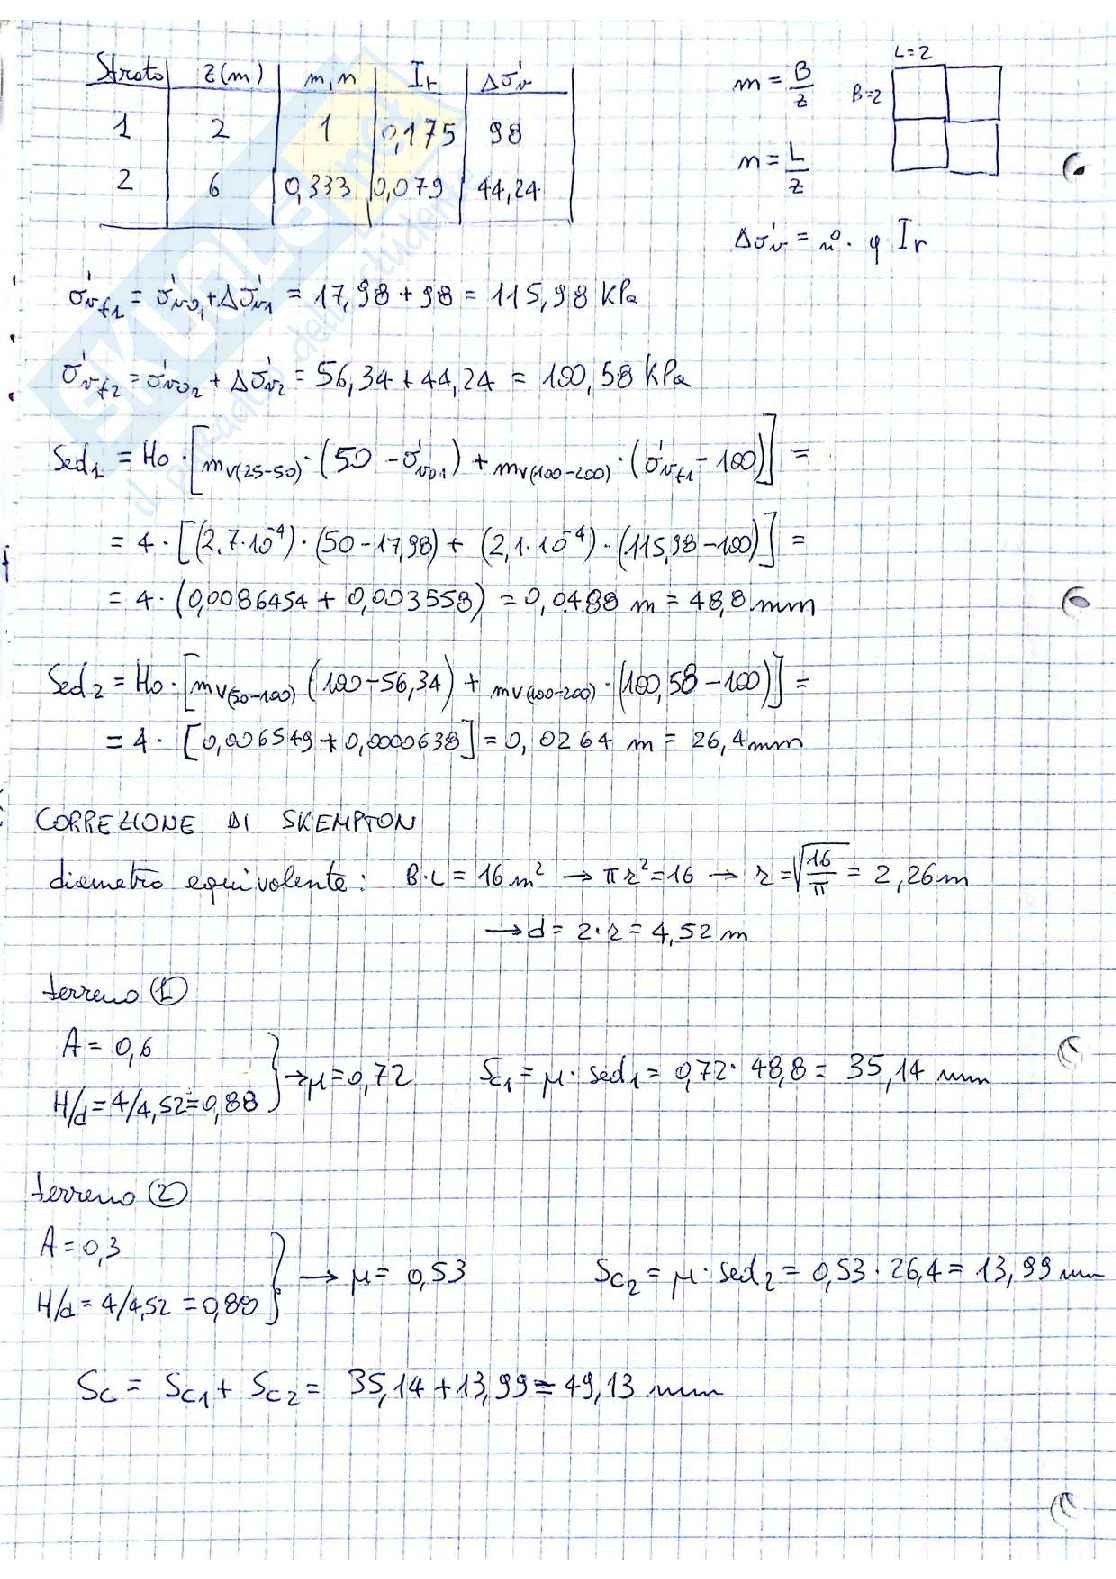 Strato z(m) m,n Ir Δσ'v
1 2 1 0,175 98
2 6 0,333 0,079 44,24
m = B/z
m = L/z
L=2
B=2
Δσ'v = n°. q Ir
σ'vf1 = σ'v0,1 + Δσ'v1 = 17,98 + 98 = 115,98 KPa
σ'vf2 = σ'v02 + Δσ'v2 = 56,34 + 44,24 = 100,58 KPa
Sed1 = Ho · [mv(25-50) · (50 - σ'v01) + mv(100-200) · (σ'vf1 - 100)] =
= 4 · [(2,7·10^-4) · (50 - 17,98) + (2,1·10^-4) · (115,98 - 100)] =
= 4 · (0,0086454 + 0,003558) = 0,0488 m = 48,8 mm
Sed2 = Ho · [mv(50-100) (100 - 56,34) + mv(100-200) · (100,58 - 100)] =
= 4 · [0,006549 + 0,0000638] = 0,0264 m = 26,4 mm
CORREZIONE DI SKEMPTON
diametro equivalente: B·L = 16 m² → πr² = 16 → r = √(16/π) = 2,26 m
→ d = 2·r = 4,52 m
terreno (1)
A = 0,6
H/d = 4/4,52 = 0,88
→ μ = 0,72 Sc1 = μ · sed1 = 0,72 · 48,8 = 35,14 mm
terreno (2)
A = 0,3
H/d = 4/4,52 = 0,88
→ μ = 0,53 Sc2 = μ · sed2 = 0,53 · 26,4 = 13,99 mm
Sc = Sc1 + Sc2 = 35,14 + 13,99 = 49,13 mm
SKUOLA.net